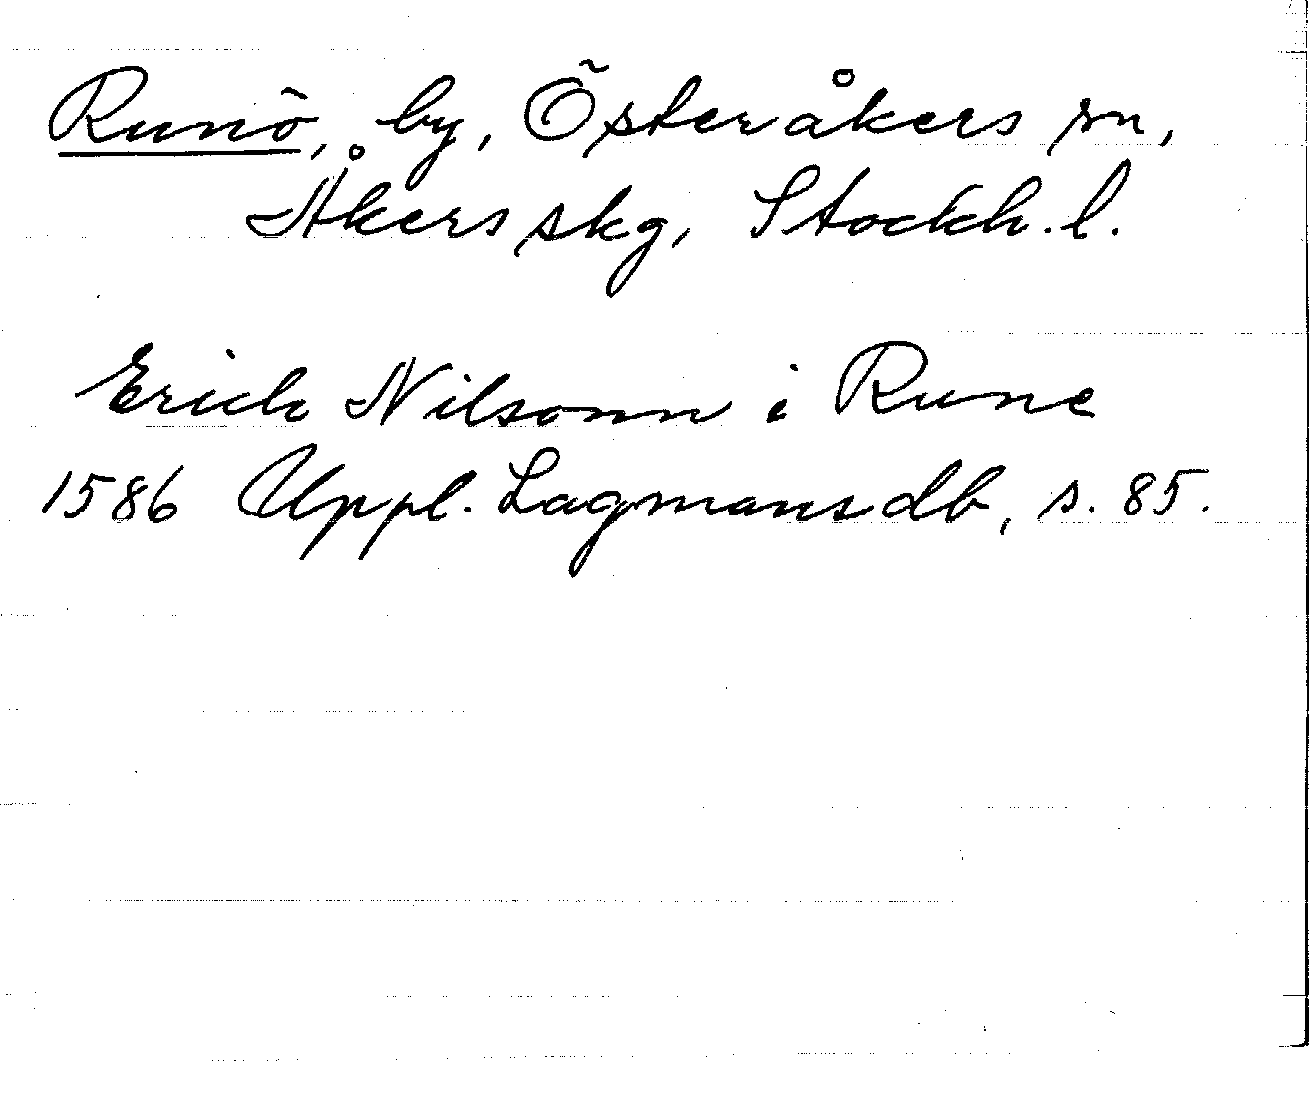 Runö, by, Österåkers sn,
Åkers skg, Stockh. l.
Erich Nilsonn i Rune
1586 Uppl. Lagmansdb, s. 85.